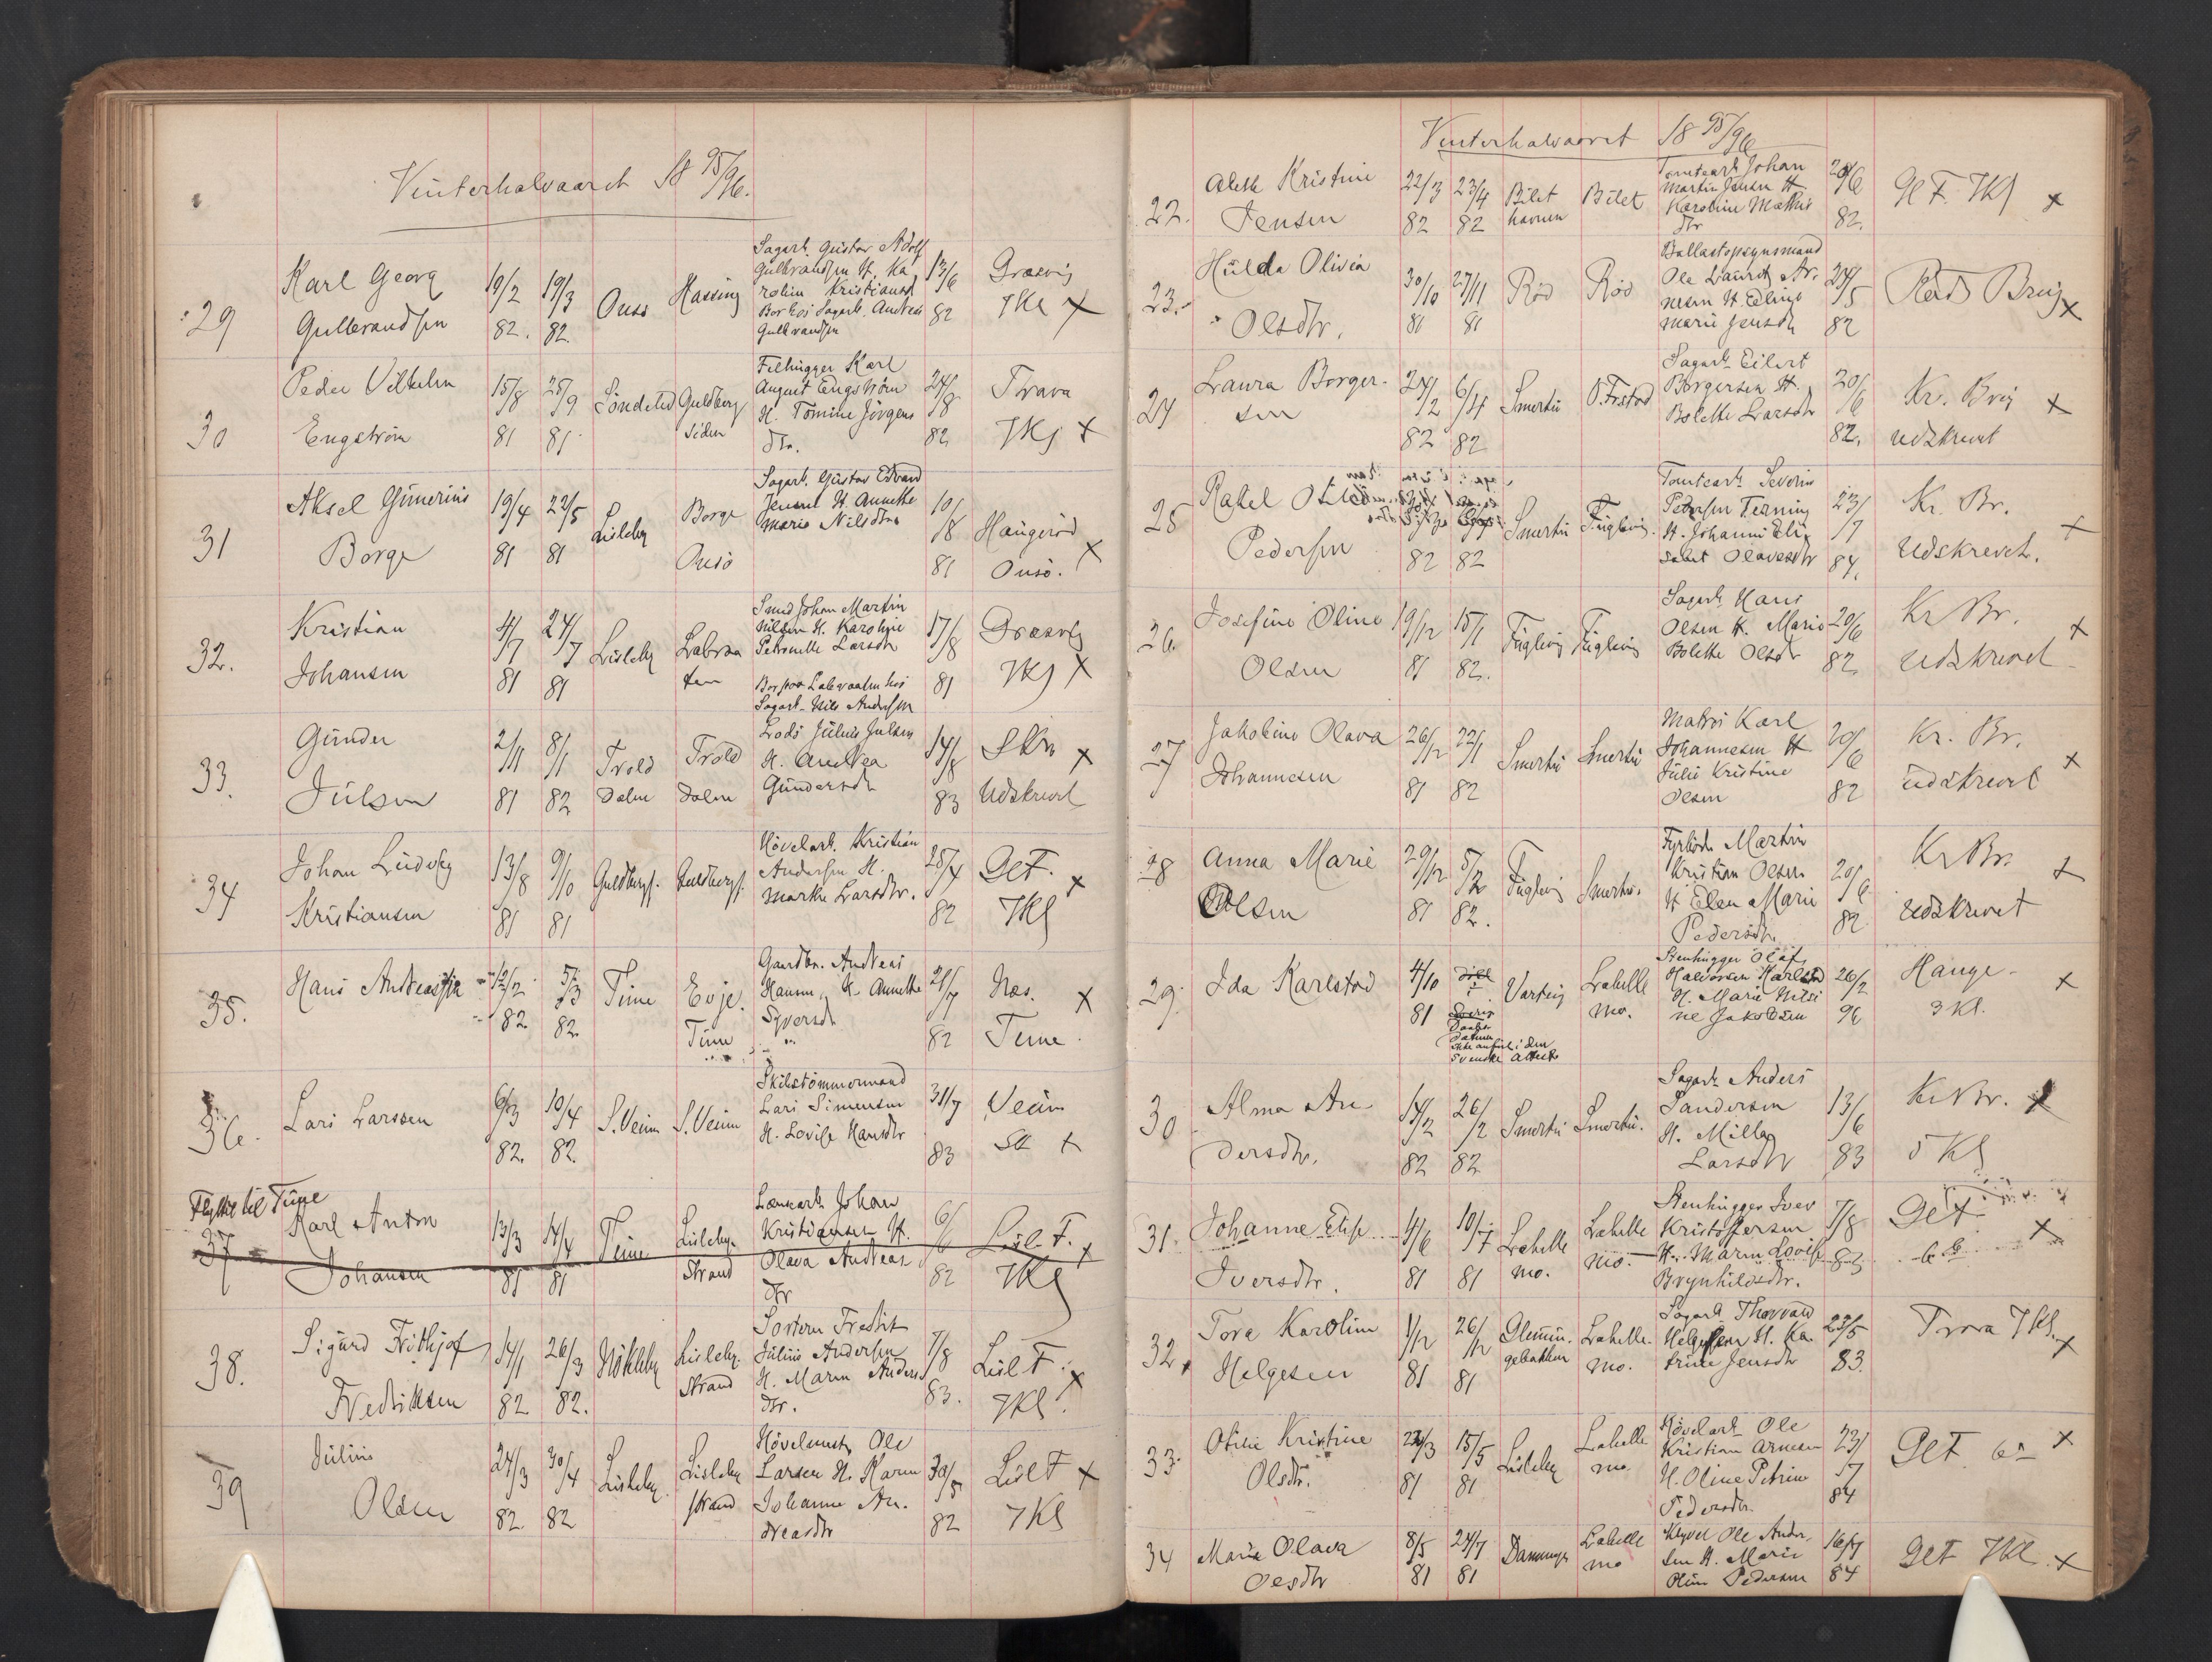 Vinterhalvaaret 18 95/96.
29
Karl Georg
Gulbrandsen
19/2 82.
19/3 82.
Onsø
Sagarb. Gustav Adolf
Gulbrandsen H. Ka
roline Kristiansd
Bor hos Sagarb. Andreas
Gulbrandsen
13/6 82
Græsvig
7Kl x
30
Peder Vilhelm
Engstrøm
15/8 81
25/9 81.
Guldberg
siden
Filhugger Karl
August Engstrøm
H. Tomine Jörgens
dtr.
24/8 82
Trava
7Kl x
31
Aksel Gunerius
Borge
19/4 81
22/5 81
Lisleby
Borge
Onsö
Sagarb. Gustav Edvard
Jensen H. Annette
Marie Nilsdtr
10/8 81
Haugeröd
Onsö. x
32.
Kristian
Johansen
4/7 81
24/7 81
Lisleby
Smed Johan Martin
Nilsen H. Karoline
Petronelle Larsdtr
Sagarb. Nils Andersen
17/8 81
Græsvig
7Kl x
33.
Gunder
Julsen
2/11 81
8/1 82
Trold
dalen
Trold
dalen
Lods Julius Julsen
H. Andrea
Gundersdtr
14/8 83
x
Udskrevet
34
Johan Ludvig
Kristiansen
13/8 81
9/10 81
Guldbergs.
Guldbergs.
Hövelarb. Kristian
Andersen H.
Marthe Larsdtr.
25/4 82
Gl.F.
7Kl x
35.
Hans Andreas
12/2 82
5/3 82.
Tune
Evje.
Tune
Gaardbr. Andreas
Hansen, H. Annette
Syversd
21/7 82
Næs.
Tune. x
36.
Lars Larssen
6/3 82.
10/4 82.
S. Veum
S. Veum
Skibstömmermand
Lars Simensen
H. Lovise Hansdtr
31/7 83
Veum
x
Flyttet til Tune
37
Karl Anton
Johansen
13/3 81
14/4 81
Tune
Lisleby.
Strand
Johan
Kristiansen H.
Olava Andreas
dtr
6/6 82
Lisl. F. x
7Kl
38.
Sigurd Frithjof
Fredriksen
14/1 82
26/3 82.
Lisleby.
Strand
Fredrik
Julius Andersen
H. Maren Anders
dtr.
7/8 83.
Lisl F. x
7Kl.
39
Julius
Olsen
24/3 82.
30/4 82
Lisleby
Lisleby
strand
Hövelmest. Ole
Larsen H. Karen
Johanne An.
dreasdtr
30/5 82
Lisl F x
7Kl
Vinterhalvaaret 18 95/96
22.
Alette Kristine
Jensen
22/3 82
23/4 82
Bilet
havnen
Bilet
Tomtearb. Johan
Martin Jensen H.
Karoline Mathis
dtr
20/6 82.
Gl F. 7Kl x
23.
Hulda Olivia
Olsdtr.
30/10 81
27/11 81
Röd
Röd
Ballastopsynsmand
Ole Laurits Ar.
nesen H. Edlings
Marie Jensdtr
24/5 82
Röds Brug x
24
Laura Borger-
sen
24/2 82
6/4 82
Smertu
Ö. Fr.stad
Sagarb. Eilert
Borgersen H.
Bolette Larsdtr
20/6 82.
Kr. Brig x
udskrevet
25
Rakel
Pedersen
82
82
Smertu
Fuglevig.
Tomtearb. Severin
H. Johanne Eli.
sabet Olavesdtr
23/7 84.
Kr. Br. x
Udskrevet.
26.
Josefine Oline
Olsen
19/12 81
15/1 82.
Fuglevig
Fuglevig
Sagarb. Hans
Olsen H. Marie
Bolette Olsdtr
20/6 82
Kr Br. x
Udskrevet
27
Jakobine Olava
Johannesen
26/12 81
22/1 82
Smertu
Smertu
Matros Karl
Johannesen H
Julie Kristine
Olsen
20/6 82
Kr. Br. x
Udskrevet
28
Anna Marie
Olsen
29/12 81
5/2 82.
Fuglevig
Smertu.
Fyrböder Martin
Kristian Olsen
H Elen Marie
Pedersdtr.
20/6 82
Kr Br. x
Udskrevet
29.
Ida Karlstad
4/10 81
Daabs
datum
ikke anfört i den
svenske attest
Varteig
Labelle
mo.
Stenhugger Olaf
Halvorsen Karlstad
H. Marie Nilsi
ne Jakobsen
26/2 96
Hauge- x
3 Kl.
30
Alma An
dersdtr.
14/2 82
26/2 82
Smertu
Smertu.
Sagarb. Anders
Sandersen
H. Milla
Larsdtr
13/6 83
Kr Br. x
5 Kl
31.
Johanne Elise
Iversdtr.
4/6 81
10/7 81
Labelle
mo.
Labelle
mo.
Stenhugger Iver
Kristoffersen
H. Maren Lovise
Brynhildsdtr.
7/8 83
Gl F. x
32.
Tora Karoline
Helgesen
1/12 81
26/12 81
Glemin.
gebakken
Labelle-
mo.
Sagarb. Thorvald
Helgesen H. Ka.
trine Jensdtr
23/5 83.
Trara 7Kl. x
33.
Otilie Kristine
Olsdtr.
15/5 81
Lisleby
Labelle
mo
Hövelarb. Ole
Kristian Arnesen
H. Oline Petrine
Pedersdtr.
23/7 84
Gl F x
34
Maria Olava
Olsdtr
8/5 81
24/7 81
Labelle
mo
Ole Ander.
sen H. Marie
Oline Pedersen
16/7 84
Gl F 7Kl x